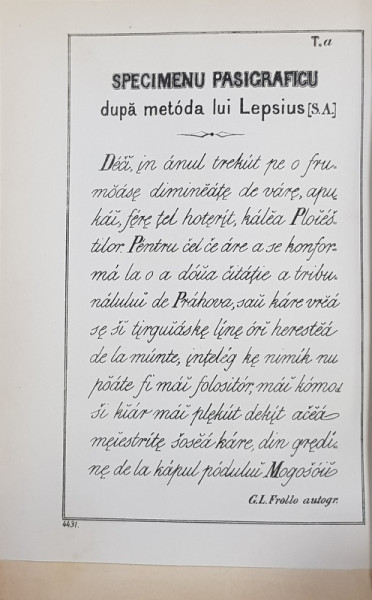 T. a
SPECIMENU PASIGRAFICU
după metóda lui Lepsius [S.A.]
Déčĭ, įn ánul trekút pe o fru-
mŏásę diminĕáțę de várę, apu̯
káĭ, fę́rę țel hotęrį́t, kálĕa Ploĭéš-
tilor. Péntru čel če áre a se konfor-
má la o a dóŭa čitáție a tribu-
nálulŭĭ de Práhova, saŭ káre vrĕá
sę šĭ tįrguĭáskę lį́nę órĭ herestĕá
de la múnte, ințelég kę nimík nu
pŏáte fi máĭ folositór, máĭ kómod
šĭ kĭár máĭ plękút dekį́t ačĕá
męĭestrítę šosĕá káre, din grędí-
nę de la kápul póduluĭ Mogošóĭĭ
G. L. Frollo autogr.
4431.